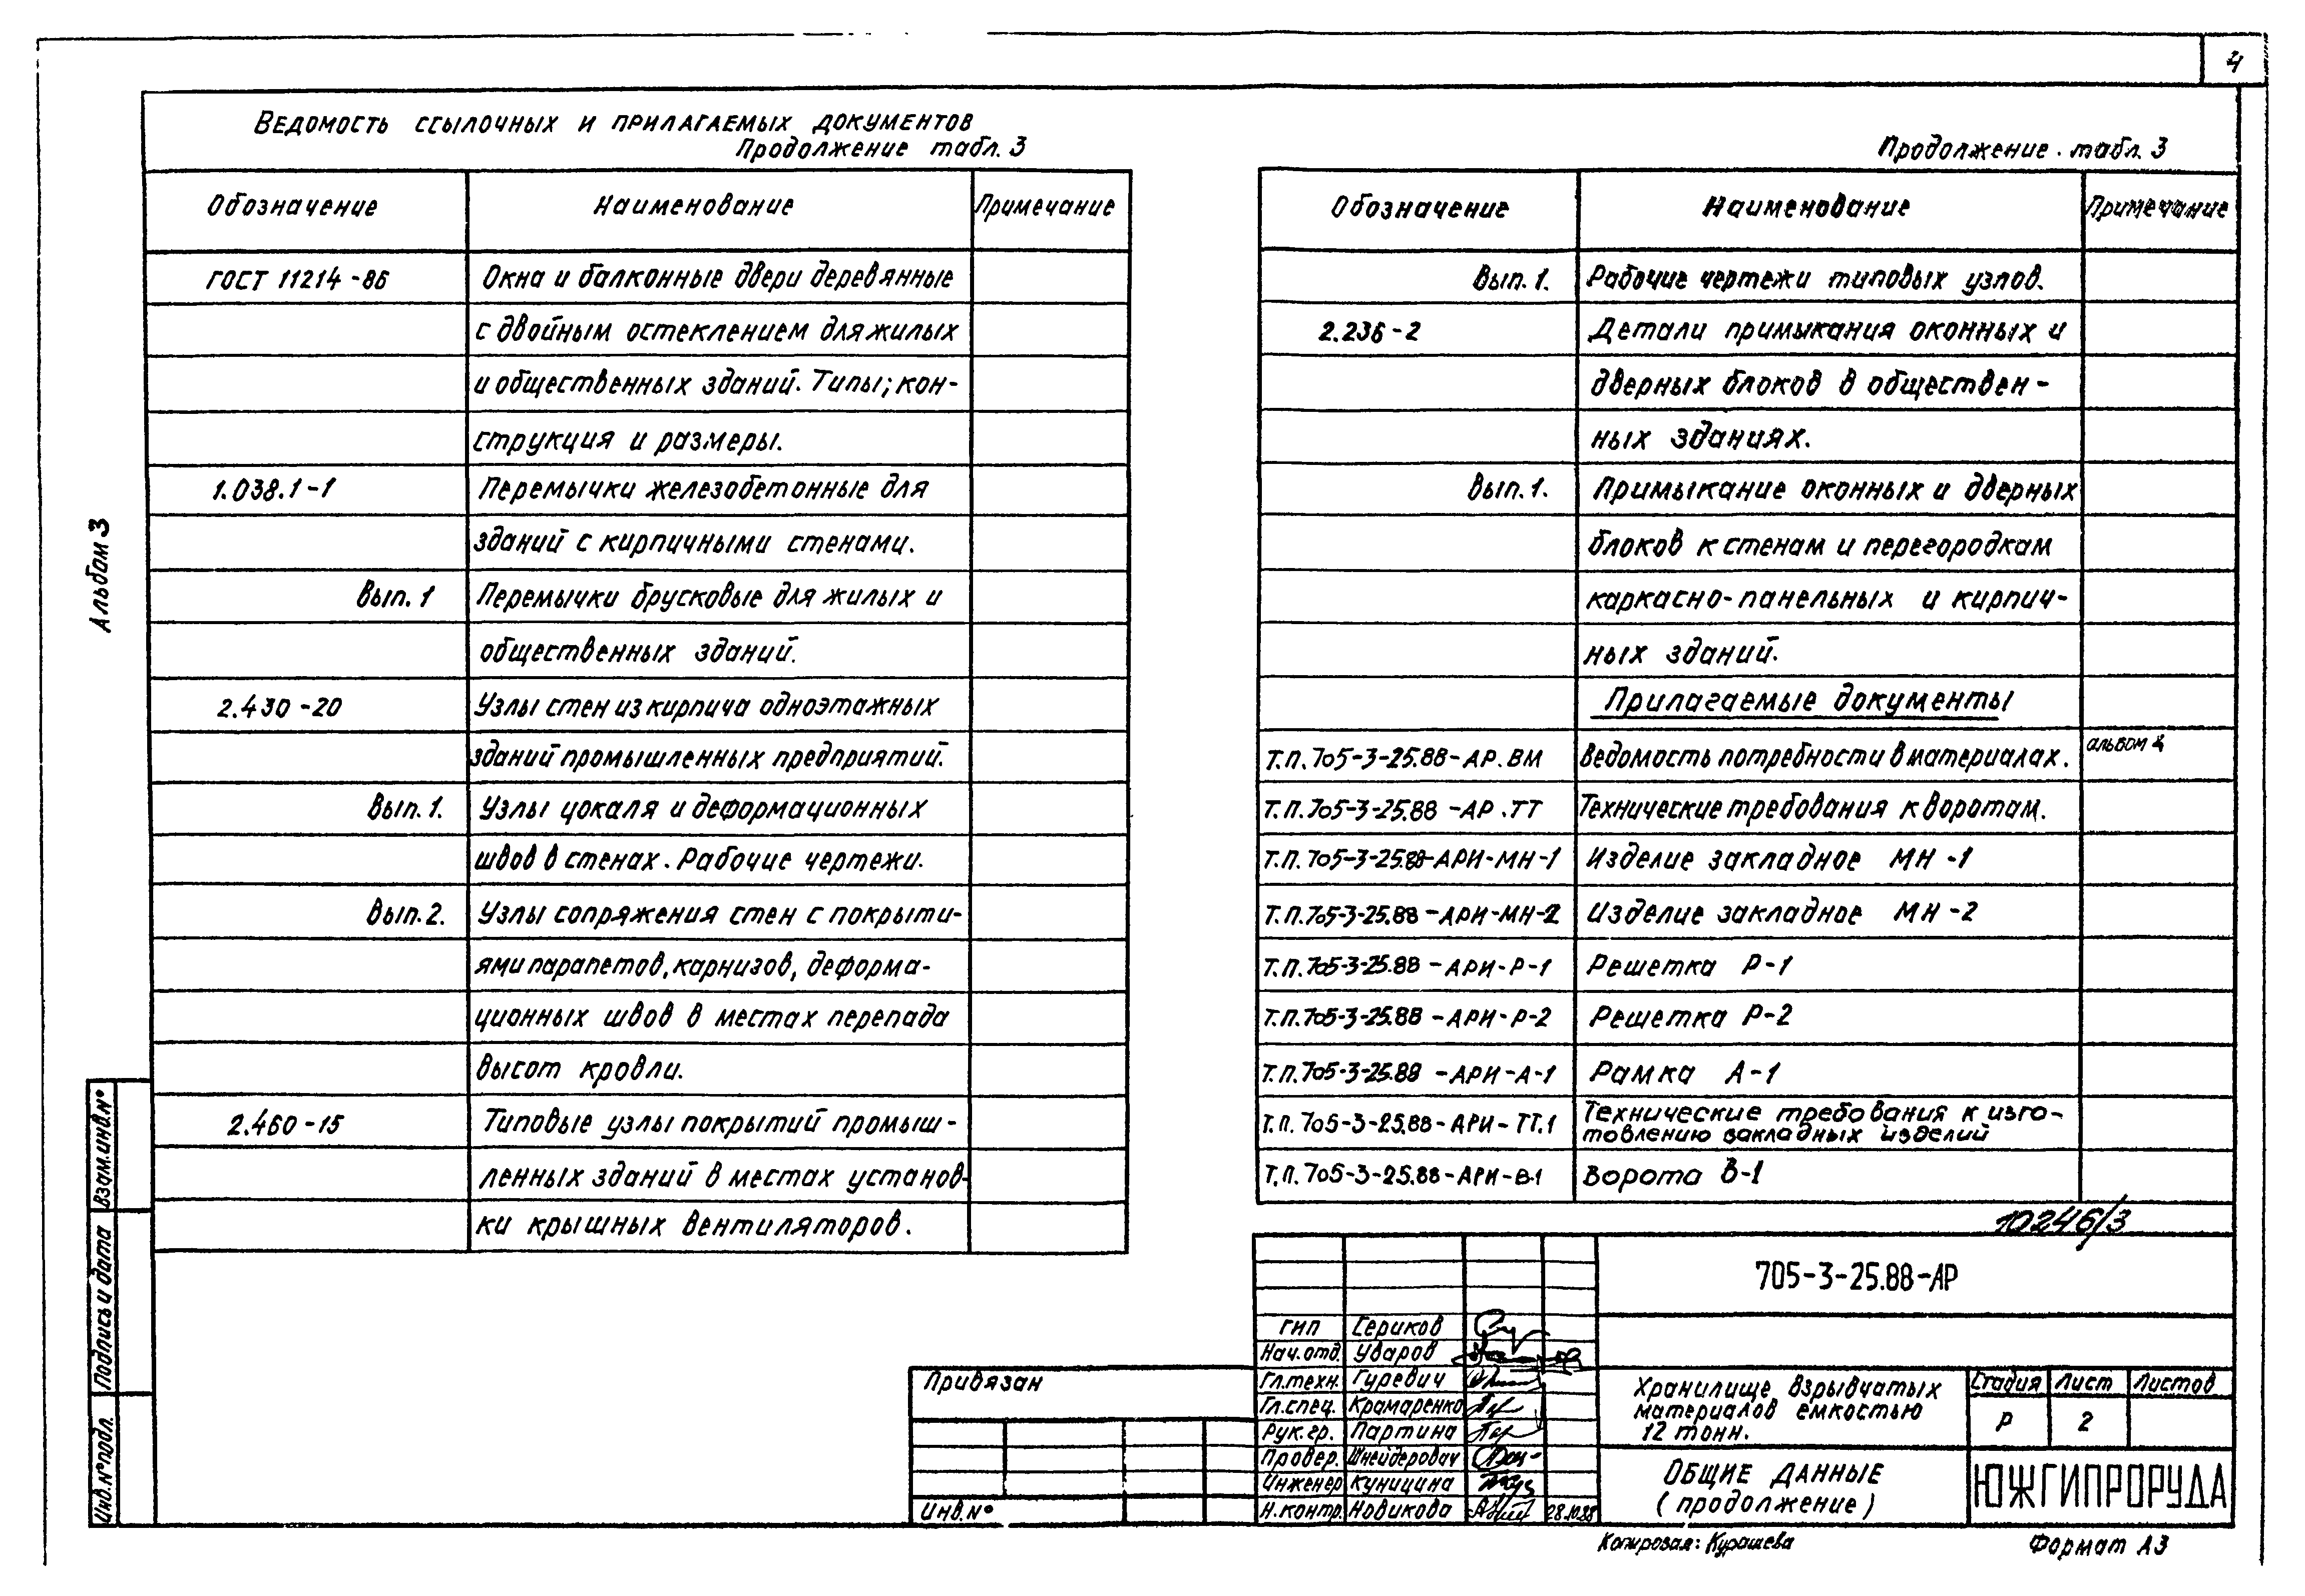 4
Ведомость ссылочных и прилагаемых документов
Продолжение табл. 3
Обозначение Наименование Примечание
ГОСТ 11214-86 Окна и балконные двери деревянные
с двойным остеклением для жилых
и общественных зданий. Типы; кон-
струкция и размеры.
1.038.1-1 Перемычки железобетонные для
зданий с кирпичными стенами.
Вып. 1 Перемычки брусковые для жилых и
общественных зданий.
2.430-20 Узлы стен из кирпича одноэтажных
зданий промышленных предприятий.
Вып. 1. Узлы цокаля и деформационных
швов в стенах. Рабочие чертежи.
Вып. 2. Узлы сопряжения стен с покрыти-
ями парапетов, карнизов, деформа-
ционных швов в местах перепада
высот кровли.
2.460-15 Типовые узлы покрытий промыш-
ленных зданий в местах установ-
ки крышных вентиляторов.
Продолжение табл. 3
Обозначение Наименование Примечание
Вып. 1. Рабочие чертежи типовых узлов.
2.236-2 Детали примыкания оконных и
дверных блоков в обществен-
ных зданиях.
Вып. 1. Примыкание оконных и дверных
блоков к стенам и перегородкам
каркасно-панельных и кирпич-
ных зданий.
Прилагаемые документы
Т.П. 705-3-25.88-АР.ВМ Ведомость потребности в материалах. альбом 4
Т.П. 705-3-25.88-АР.ТТ Технические требования к воротам.
Т.П. 705-3-25.88-АРИ-МН-1 Изделие закладное МН-1
Т.П. 705-3-25.88-АРИ-МН-2 Изделие закладное МН-2
Т.П. 705-3-25.88-АРИ-Р-1 Решетка Р-1
Т.П. 705-3-25.88-АРИ-Р-2 Решетка Р-2
Т.П. 705-3-25.88-АРИ-А-1 Рамка А-1
Т.П. 705-3-25.88-АРИ-ТТ.1 Технические требования к изго-
товлению закладных изделий
Т.П. 705-3-25.88-АРИ-В-1 Ворота В-1
Альбом 3
Взам.инв.№
Подпись и дата
Инв.№ подл.
10246/3
705-3-25.88-АР
ГИП Сериков
Нач.отд. Уваров
Гл.техн. Гуревич
Гл.спец. Крамаренко
Рук.гр. Партина
Провер. Шнейдерович
Инженер Куницина
Н.контр. Новикова 28.10.88
Привязан
Инв.№
Хранилище взрывчатых
материалов емкостью
12 тонн.
Стадия Лист Листов
Р 2
Общие данные
(продолжение)
ЮЖГИПРОРУДА
Копировал: Курашева
Формат А3